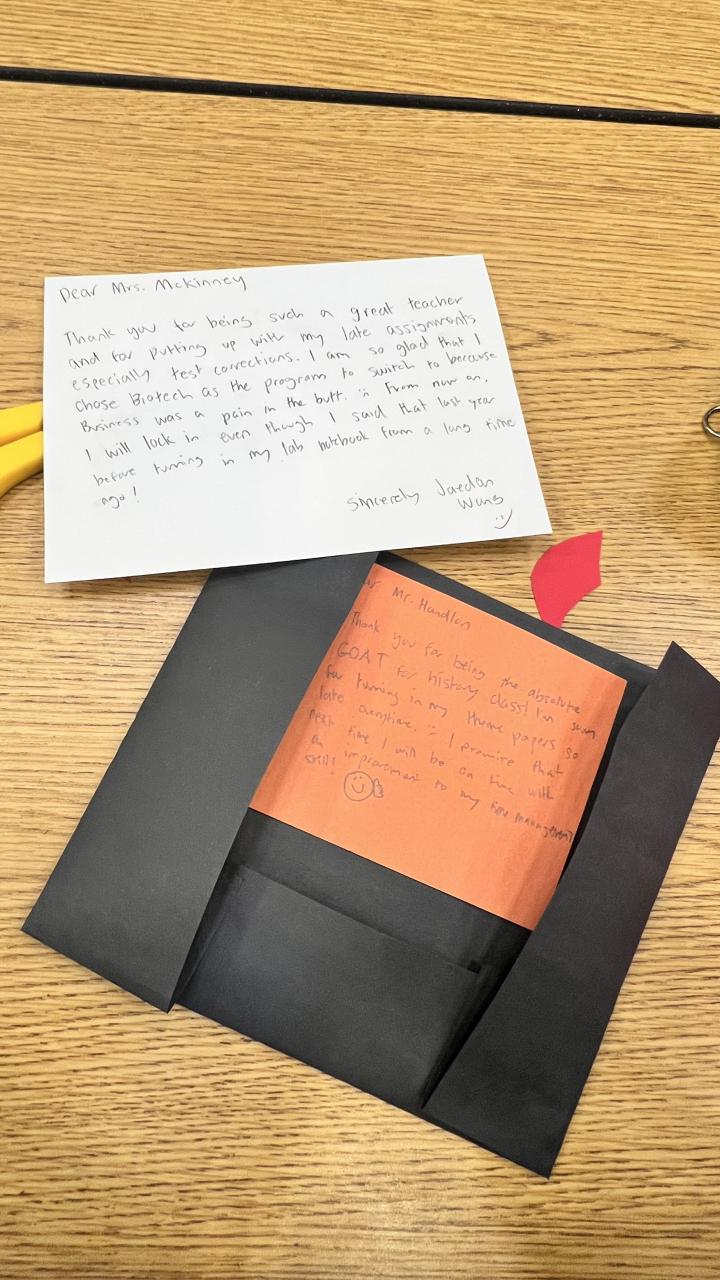 Dear Mrs. Mckinney
Thank you for being such a great teacher
and for putting up with my late assignments
especially test corrections. I am so glad that I
chose Biotech as the program to switch to because
Business was a pain in the butt. :) From now on,
I will lock in even though I said that last year
before turning in my lab notebook from a long time
ago!
Sincerely Jaedan
Wang
:)
Mr. Handlon
Thank you for being the absolute
GOAT for history class! I'm
for turning in my theme papers so
late everytime. :) I promise that
next time I will be on time with
an improvement to my time management
skill!